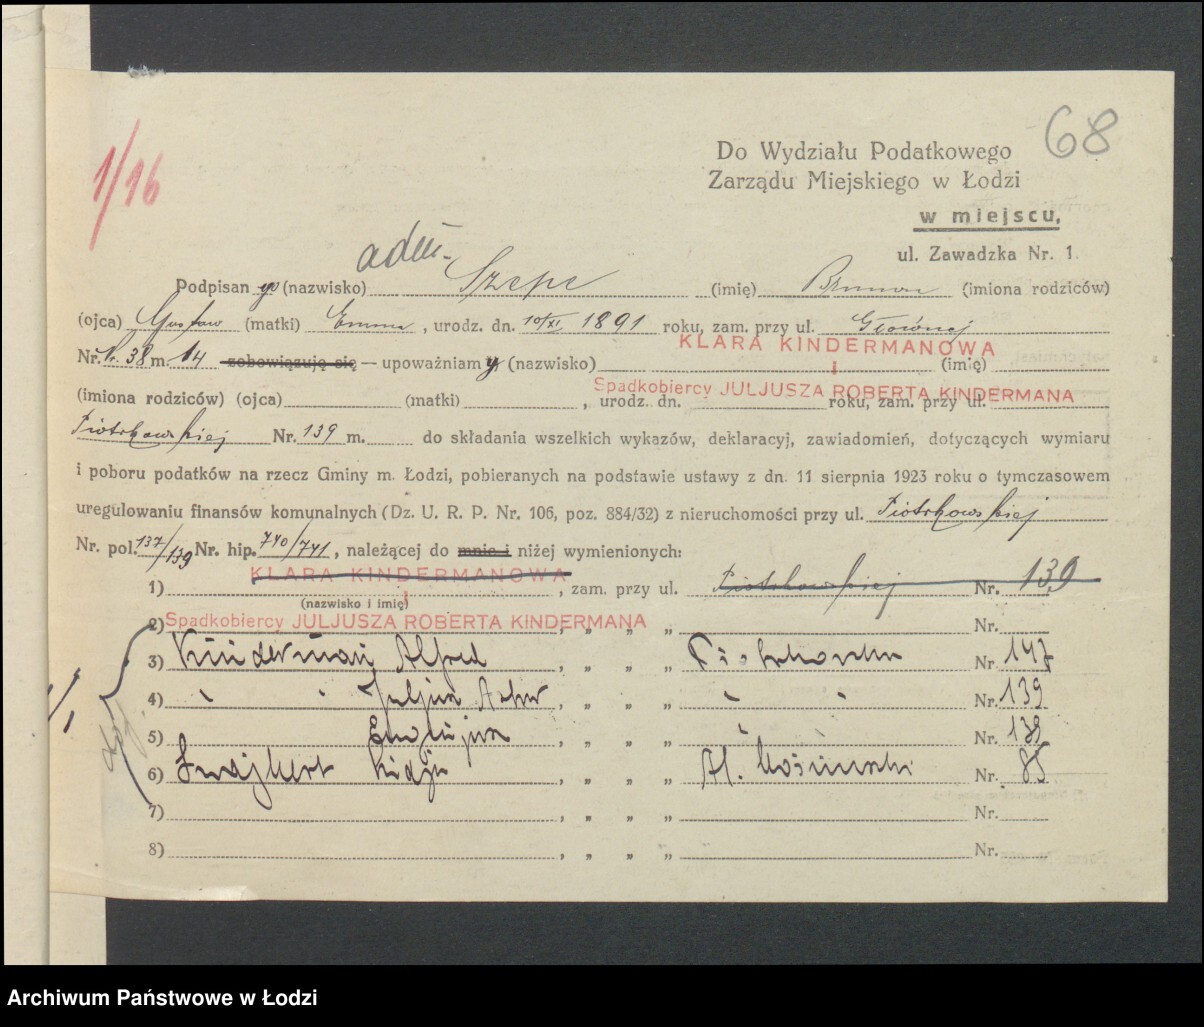 68
1/16
Do Wydziału Podatkowego
Zarządu Miejskiego w Łodzi
w miejscu,
ul. Zawadzka Nr. 1.
adm.
Podpisany (nazwisko) Szepe (imię) Brunon (imiona rodziców)
(ojca) Gustaw (matki) Emma, urodz. dn. 10/XI 1891 roku, zam. przy ul. Głównej
Nr. 38 m. 14 zobowiązuję się — upoważniam y (nazwisko) (imię)
KLARA KINDERMANOWA
i
Spadkobiercy JULJUSZA ROBERTA KINDERMANA
(imiona rodziców) (ojca) (matki) , urodz. dn. roku, zam. przy ul.
Piotrkowskiej Nr. 139 m. do składania wszelkich wykazów, deklaracyj, zawiadomień, dotyczących wymiaru
i poboru podatków na rzecz Gminy m. Łodzi, pobieranych na podstawie ustawy z dn. 11 sierpnia 1923 roku o tymczasowem
uregulowaniu finansów komunalnych (Dz. U. R. P. Nr. 106, poz. 884/32) z nieruchomości przy ul. Piotrkowskiej
Nr. pol. 137/139 Nr. hip. 740/741, należącej do mnie i niżej wymienionych:
1) KLARA KINDERMANOWA, zam. przy ul. Piotrkowskiej Nr. 139
(nazwisko i imię)
i
2) Spadkobiercy JULJUSZA ROBERTA KINDERMANA, „ „ „ Nr.
3) Kinderman Alfred, „ „ „ Piotrkowska Nr. 147
4) " " Juljusz Artur, „ „ „ " " Nr. 139
5) , „ „ „ " Nr. 139
6) Lidja, „ „ „ Al. Kościuszki Nr. 85
7) , „ „ „ Nr.
8) , „ „ „ Nr.
Archiwum Państwowe w Łodzi